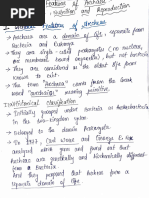 Features of Archaea
Subcellular Reproduction
1. General Features of Archaea
→ Archaea are a domain of life, separate from
Bacteria and Eukarya.
→ They are single-celled prokaryotes (no nucleus,
no membrane bound organelles), but not bacteria
→ They are considered as the oldest life form
known to exist.
→ The term "Archaea" comes from the Greek
word "archaios", meaning primitive.
Classification
→ Initially grouped under bacteria as Archaebacteria
in the kingdom
→ Belonged to the domain Prokaryota.
→ In 1977, Carl Woese and George E. Fox
Archaea are genetically and biochemically different
from Bacteria.
→ And they proposed that Archaea form a
separate domain of life.